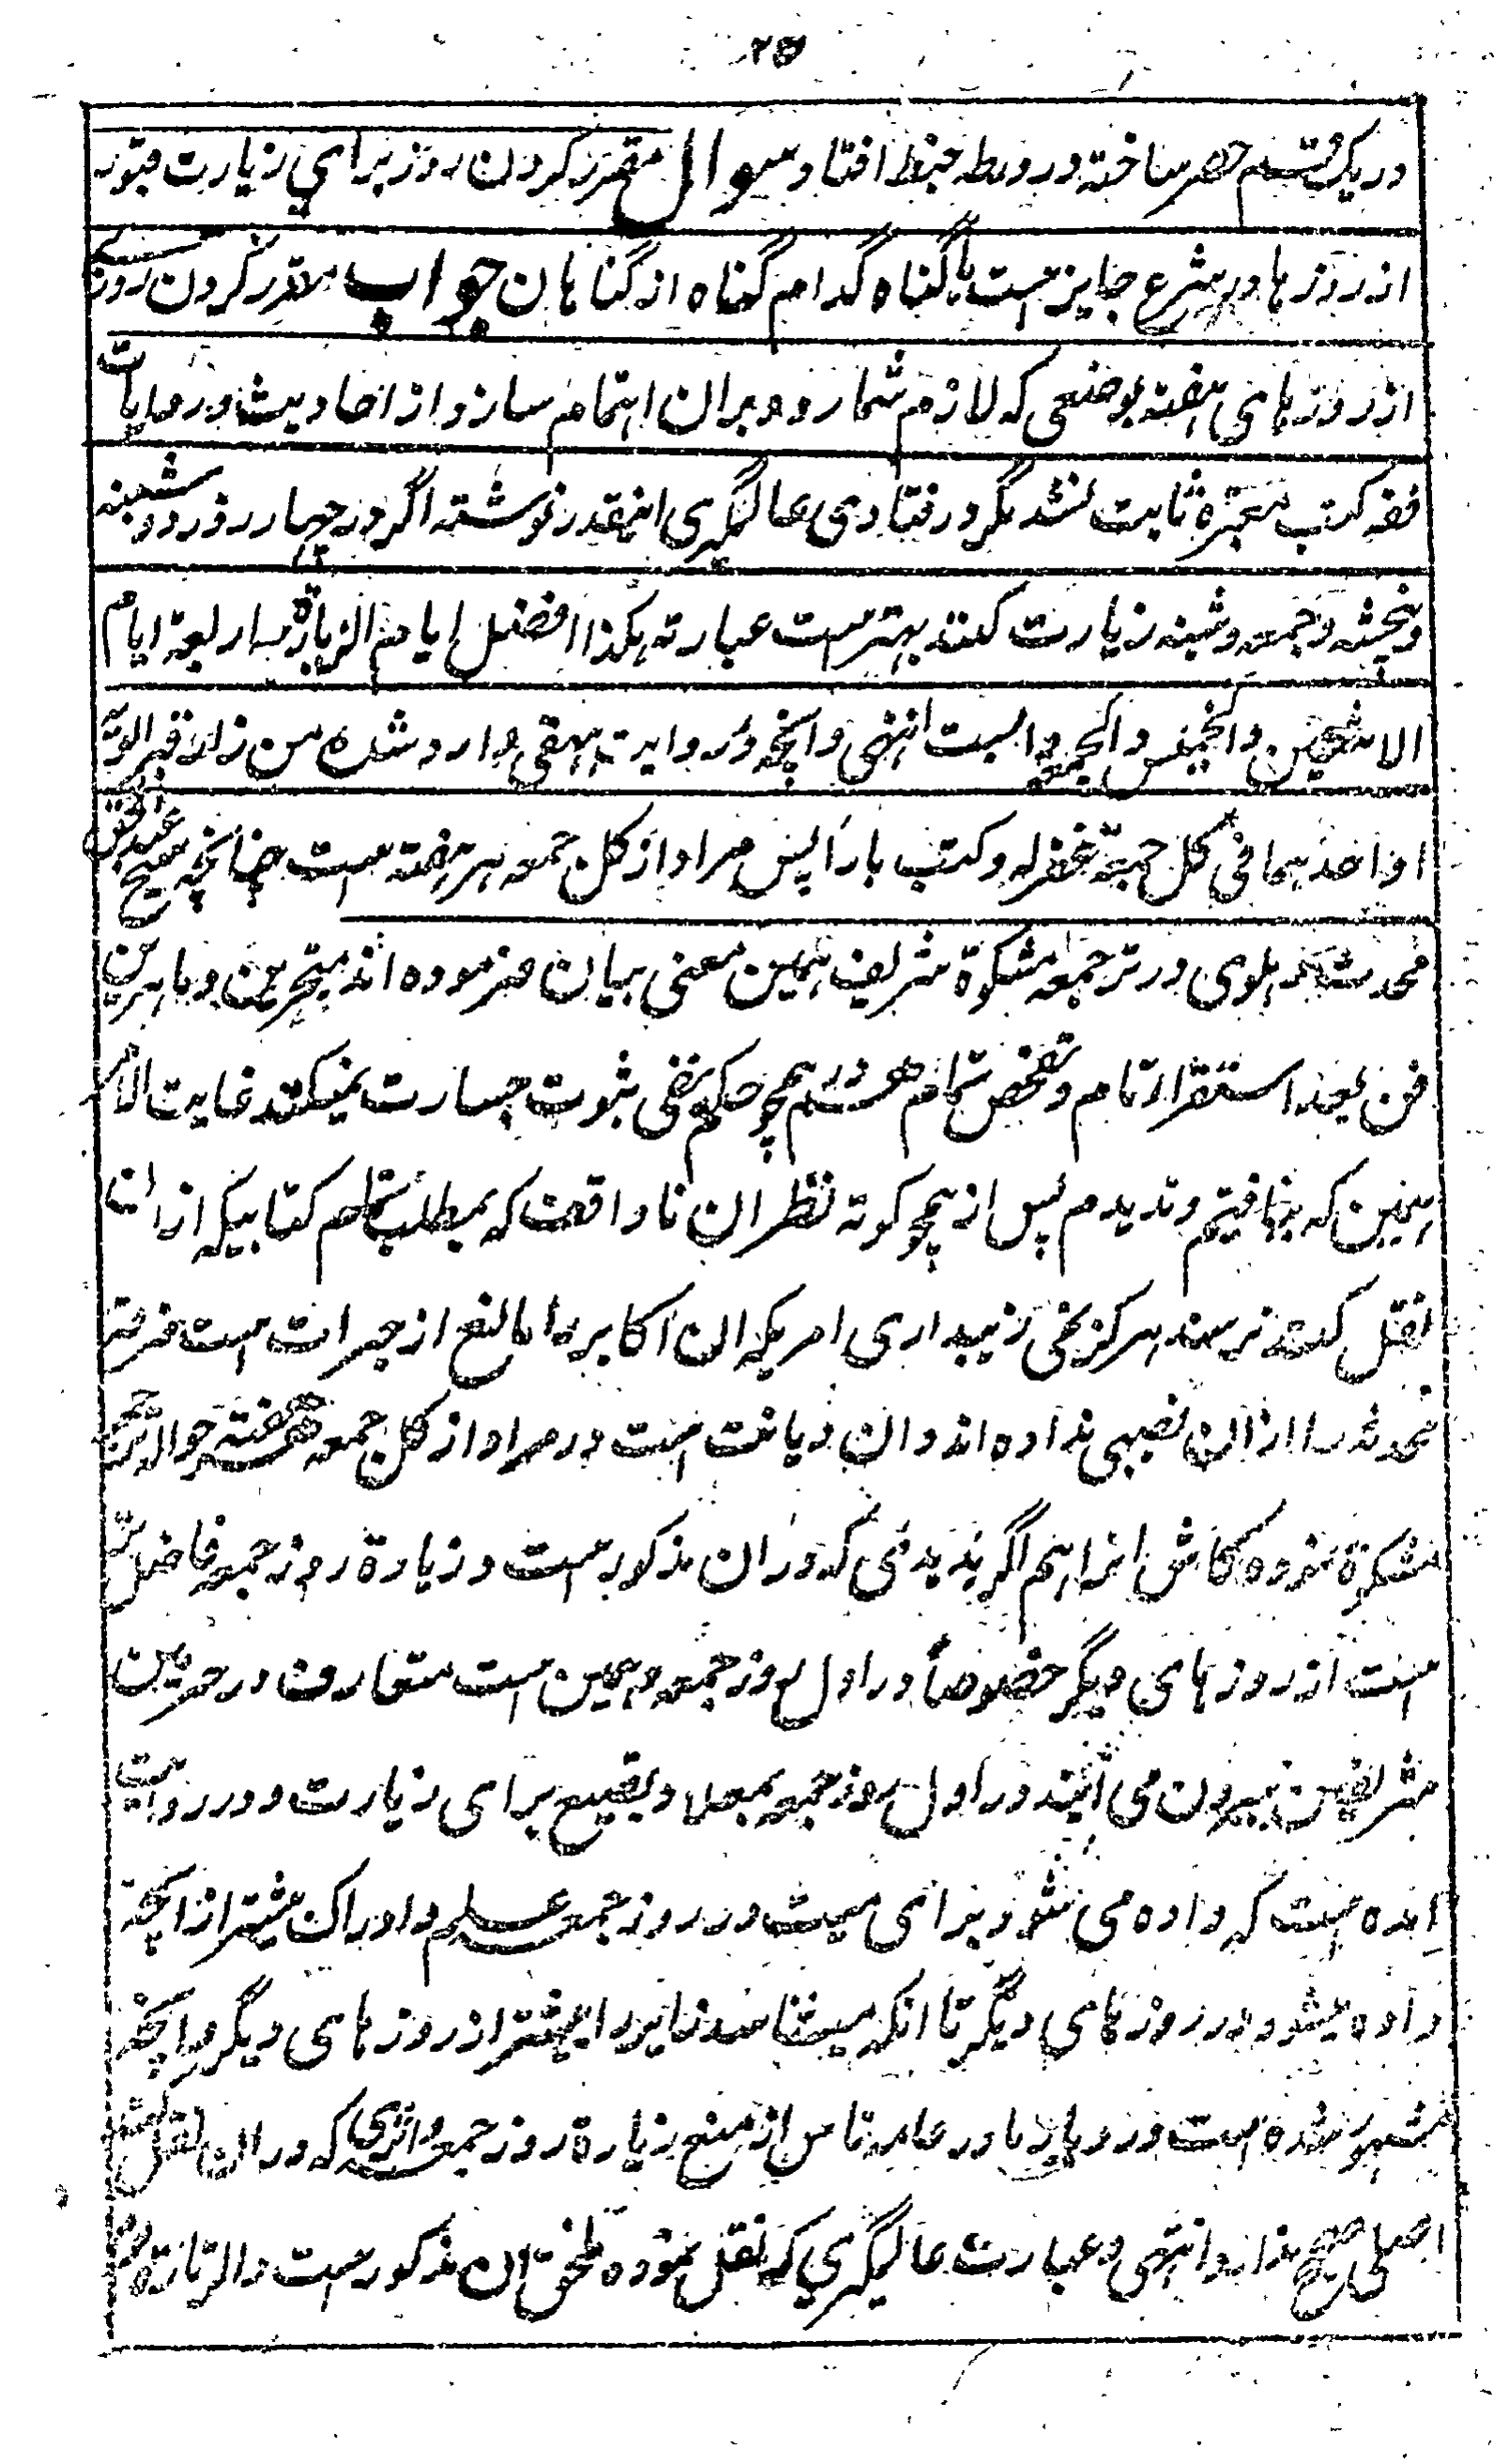 ٢٥
در یک قسم حصر ساخته در ورطه خبط افتاد سوال مقرر کردن روز برای زیارت قبور
از روزها در شرع جایز است یا گناه کدام گناه از گناهان جواب مقرر کردن روز
از روزهای هفته بوضعی که لازم شمارد و بران اهتمام سازد از احادیث و روایات
فقه کتب معتبره ثابت نشد مگر در فتاوی عالمگیری اینقدر نوشته اگر در چهار روز دوشنبه
و پنجشنبه و جمعه و شنبه زیارت کنند بهتر است عبارته هکذا افضل ایام الزیارة اربعة ایام
الاثنین و الخمیس و الجمعة و السبت انتهی و آنچه در روایت بیهقی وارد شده من زار قبر ابویه
او احدهما فی کل جمعة غفر له و کتب بارا پس مراد از کل جمعه هر هفته است چنانچه شیخ عبدالحق
محدث دهلوی در ترجمه مشکوة شریف همین معنی بیان فرموده اند متبحرین و ماهرین
فن بعد استقراء تام و تفحص تمام هم همچو حکم نفی ثبوت جسارت نمیکنند غایت الامر
همین که نیافتیم و ندیدم پس از همچو کوته نظران ناواقف که بمطلب تمام کتابیکه از ان
نقل کنند نرسند هرگز نمی زیبد اری امریکه ان اکابر را مانع از جرات است
را از ان نصیبی نداده اند و ان دیانت است در مراد از کل جمعه هر هفته حواله ترجمه
مشکوة نموده کاش انرا هم اگر بدیدی که دران مذکور است و زیارة روز جمعه فاضل تر
است از روزهای دیگر خصوصاً در اول روز جمعه و همین است متعارف در حرمین
شریفین بیرون می آیند در اول روز جمعه بمعلا و بقیع برای زیارت و در روایت
امده است که داده می شود برای میت در روز جمعه علم و ادراک بیشتر از آنچه
داده میشود در روزهای دیگر تا انکه میشناسد زایر را بیشتر از روزهای دیگر و آنچه
مشهور شده است در دیار ما در عامه ناس از منع زیارة روز جمعه و اثری که دران نقل کنند
اصلی صحیح ندارد انتهی و عبارت عالمگیری که نقل نموده ملحق ان مذکور است و الزیارة یوم